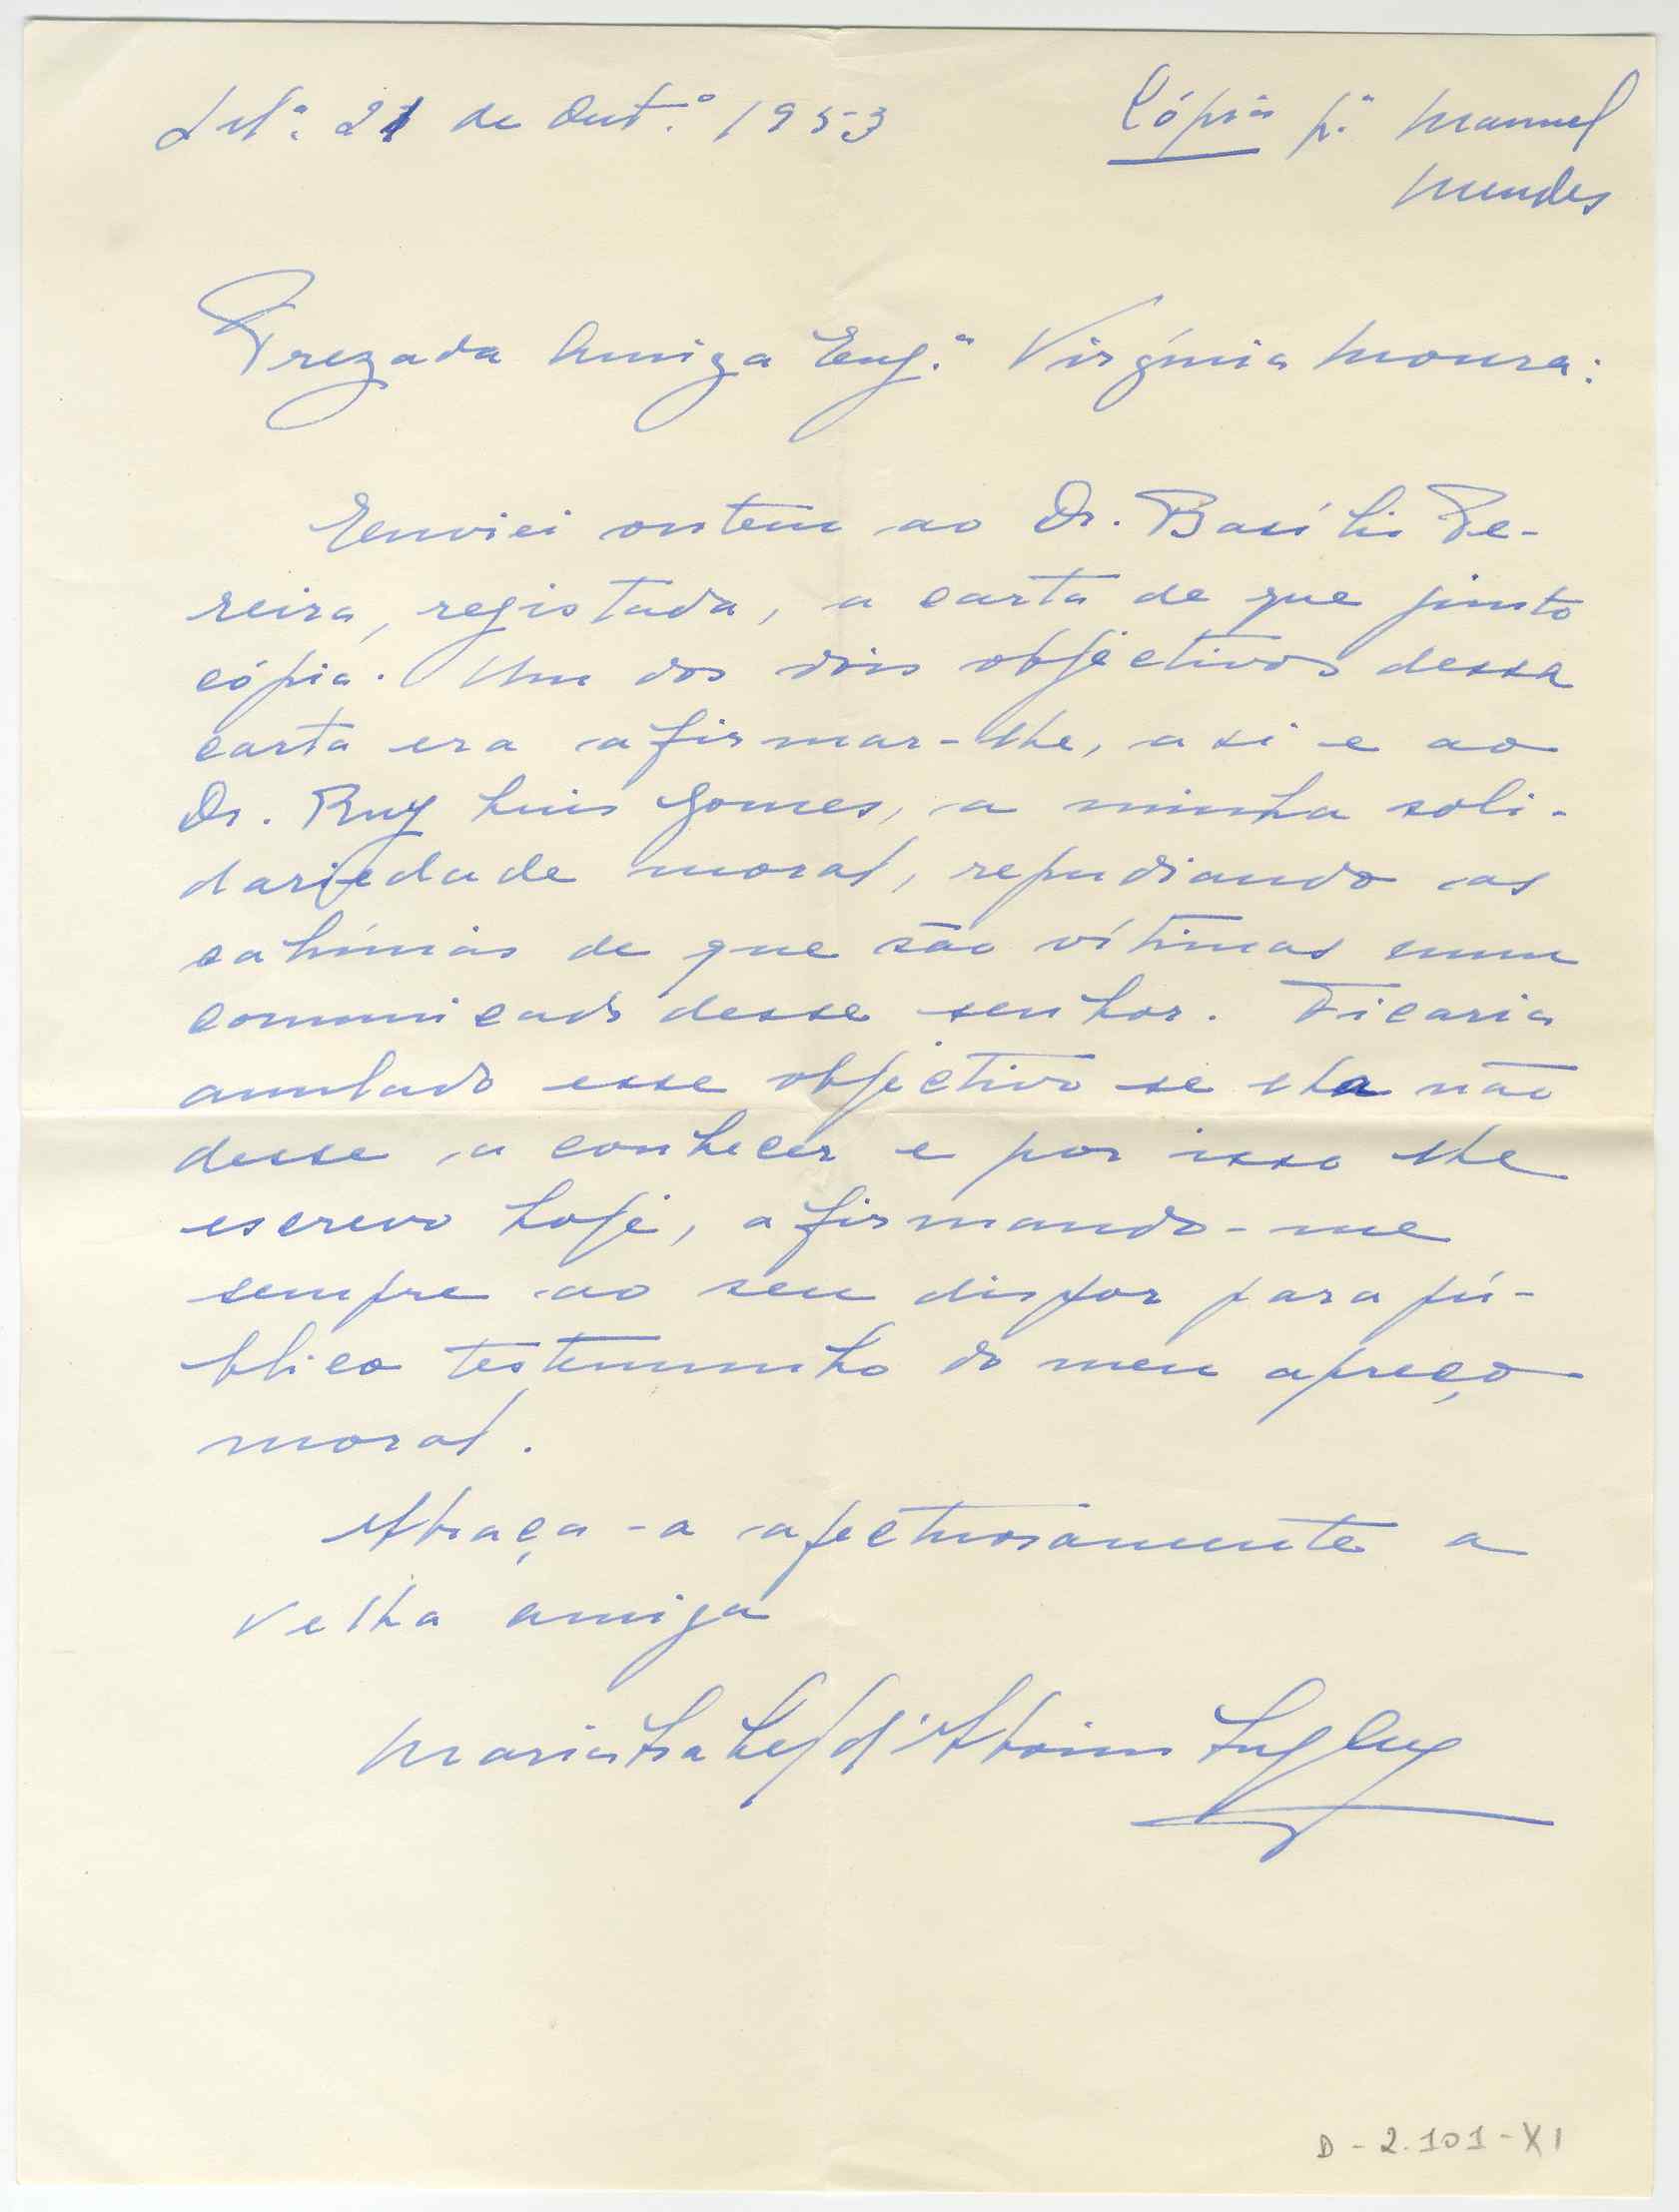 Lxª. 21 de Out.º 1953
Cópia p.ª Manuel
Mendes
Prezada Amiga Eng.ª Virgínia Moura:
Enviei ontem ao Dr. Basílio Pe-
reira, registada, a carta de que junto
cópia. Um dos dois objectivos dessa
carta era afirmar-lhe, a si e ao
Dr. Ruy Luis Gomes, a minha soli-
dariedade moral, repudiando as
calúnias de que são vítimas num
comunicado desse senhor. Ficaria
anulado esse objectivo se lha não
desse a conhecer e por isso lhe
escrevo hoje, afirmando-me
sempre ao seu dispor para pú-
blico testemunho do meu apreço
moral.
Abraça-a afectuosamente a
velha amiga
Maria Isabel d'Aboim Inglez
D-2.101-XI